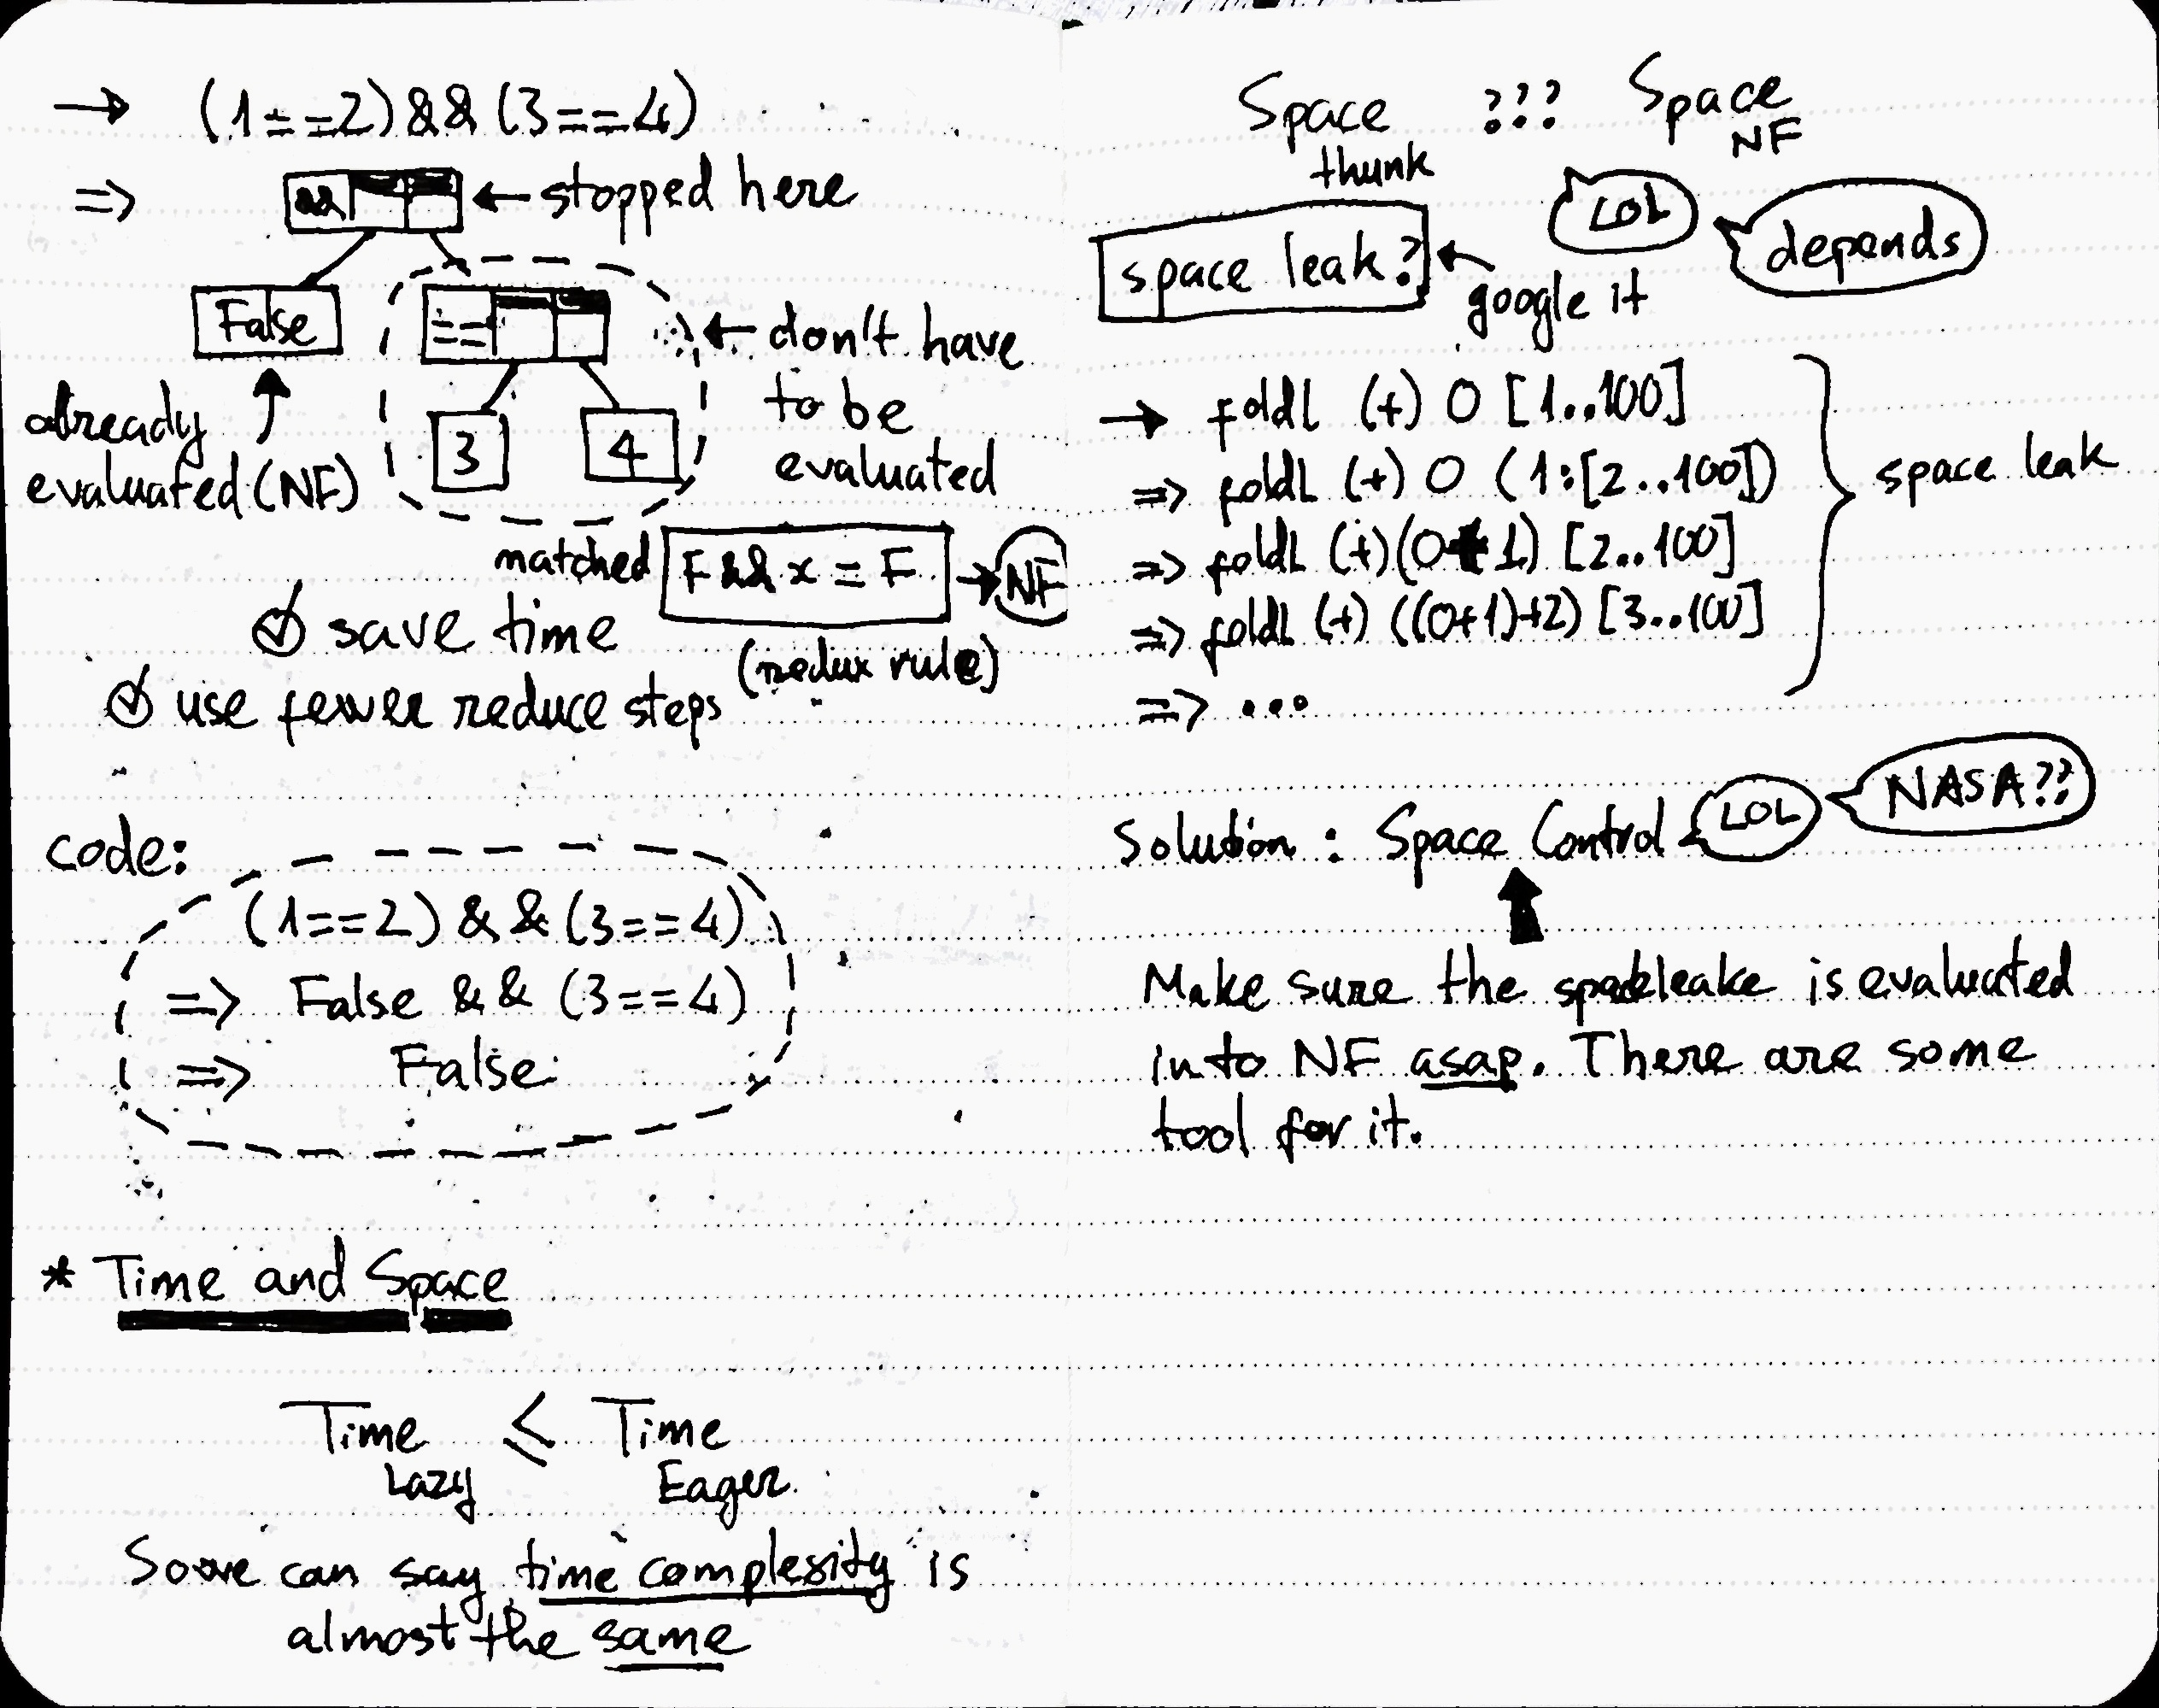 → (1==2) && (3==4)
=> && ← stopped here
False == ← don't have
already 3 4 to be
evaluated (NF) evaluated
matched F && x = F → NF
(redux rule)
save time
use fewer reduce steps
code:
(1==2) && (3==4)
=> False && (3==4)
=> False
* Time and Space
Time ≤ Time
Lazy Eager
So we can say time complexity is
almost the same
Space ??? Space
thunk NF
LOL
depends
space leak?
← google it
→ foldl (+) 0 [1..100]
=> foldl (+) 0 (1:[2..100])
=> foldl (+) (0+1) [2..100]
=> foldl (+) ((0+1)+2) [3..100]
=> ...
space leak
Solution : Space Control
LOL
NASA??
Make sure the spaceleake is evaluated
into NF asap. There are some
tool for it.